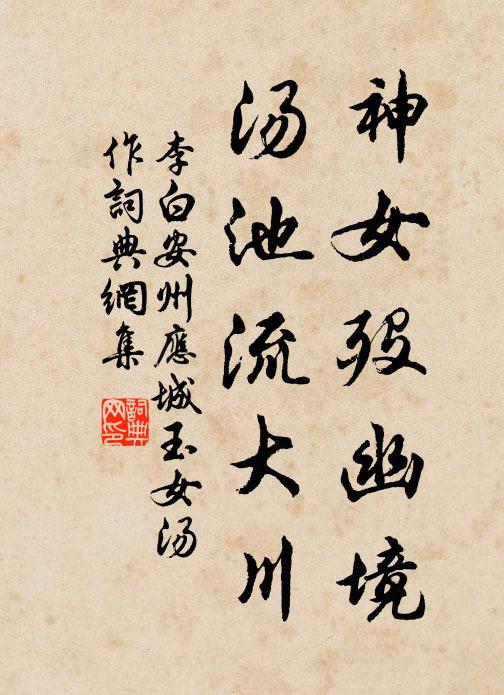 神女殁幽境
汤池流大川
李白安州應城玉女汤
作詞典網集
詞典
网印